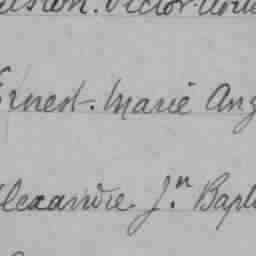 Victor
Ernest. Marie Ang
lexandre. Jn. Bapt